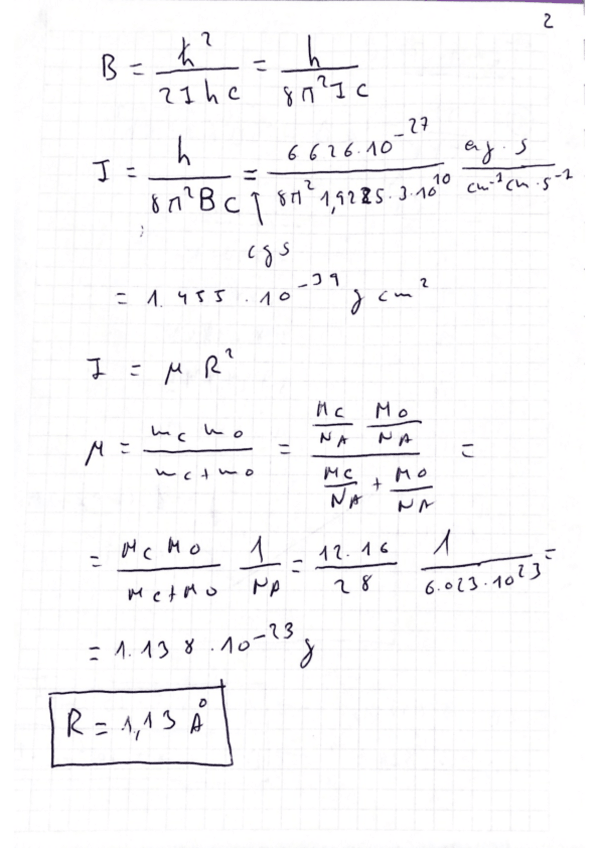 2
B = ħ² / 2Ihc = h / 8π²Ic
I = h / 8π²Bc = 6626·10⁻²⁷ / 8π² 1,9225·3·10¹⁰ erg·s / cm⁻¹cm·s⁻¹
↑
cgs
= 1.455·10⁻³⁹ g cm²
I = μ R²
μ = mc mo / mc+mo = (Mc/NA Mo/NA) / (Mc/NA + Mo/NA) =
= Mc Mo / Mc+Mo 1/NA = 12·16 / 28 1 / 6.023·10²³ =
= 1.138·10⁻²³ g
R = 1,13 Å